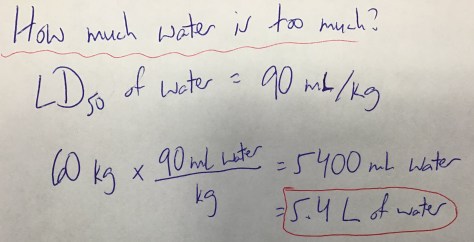 How much water is too much?
LD50 of water = 90 mL/kg
60 kg x 90 mL water / kg = 5400 mL water
= 5.4 L of water